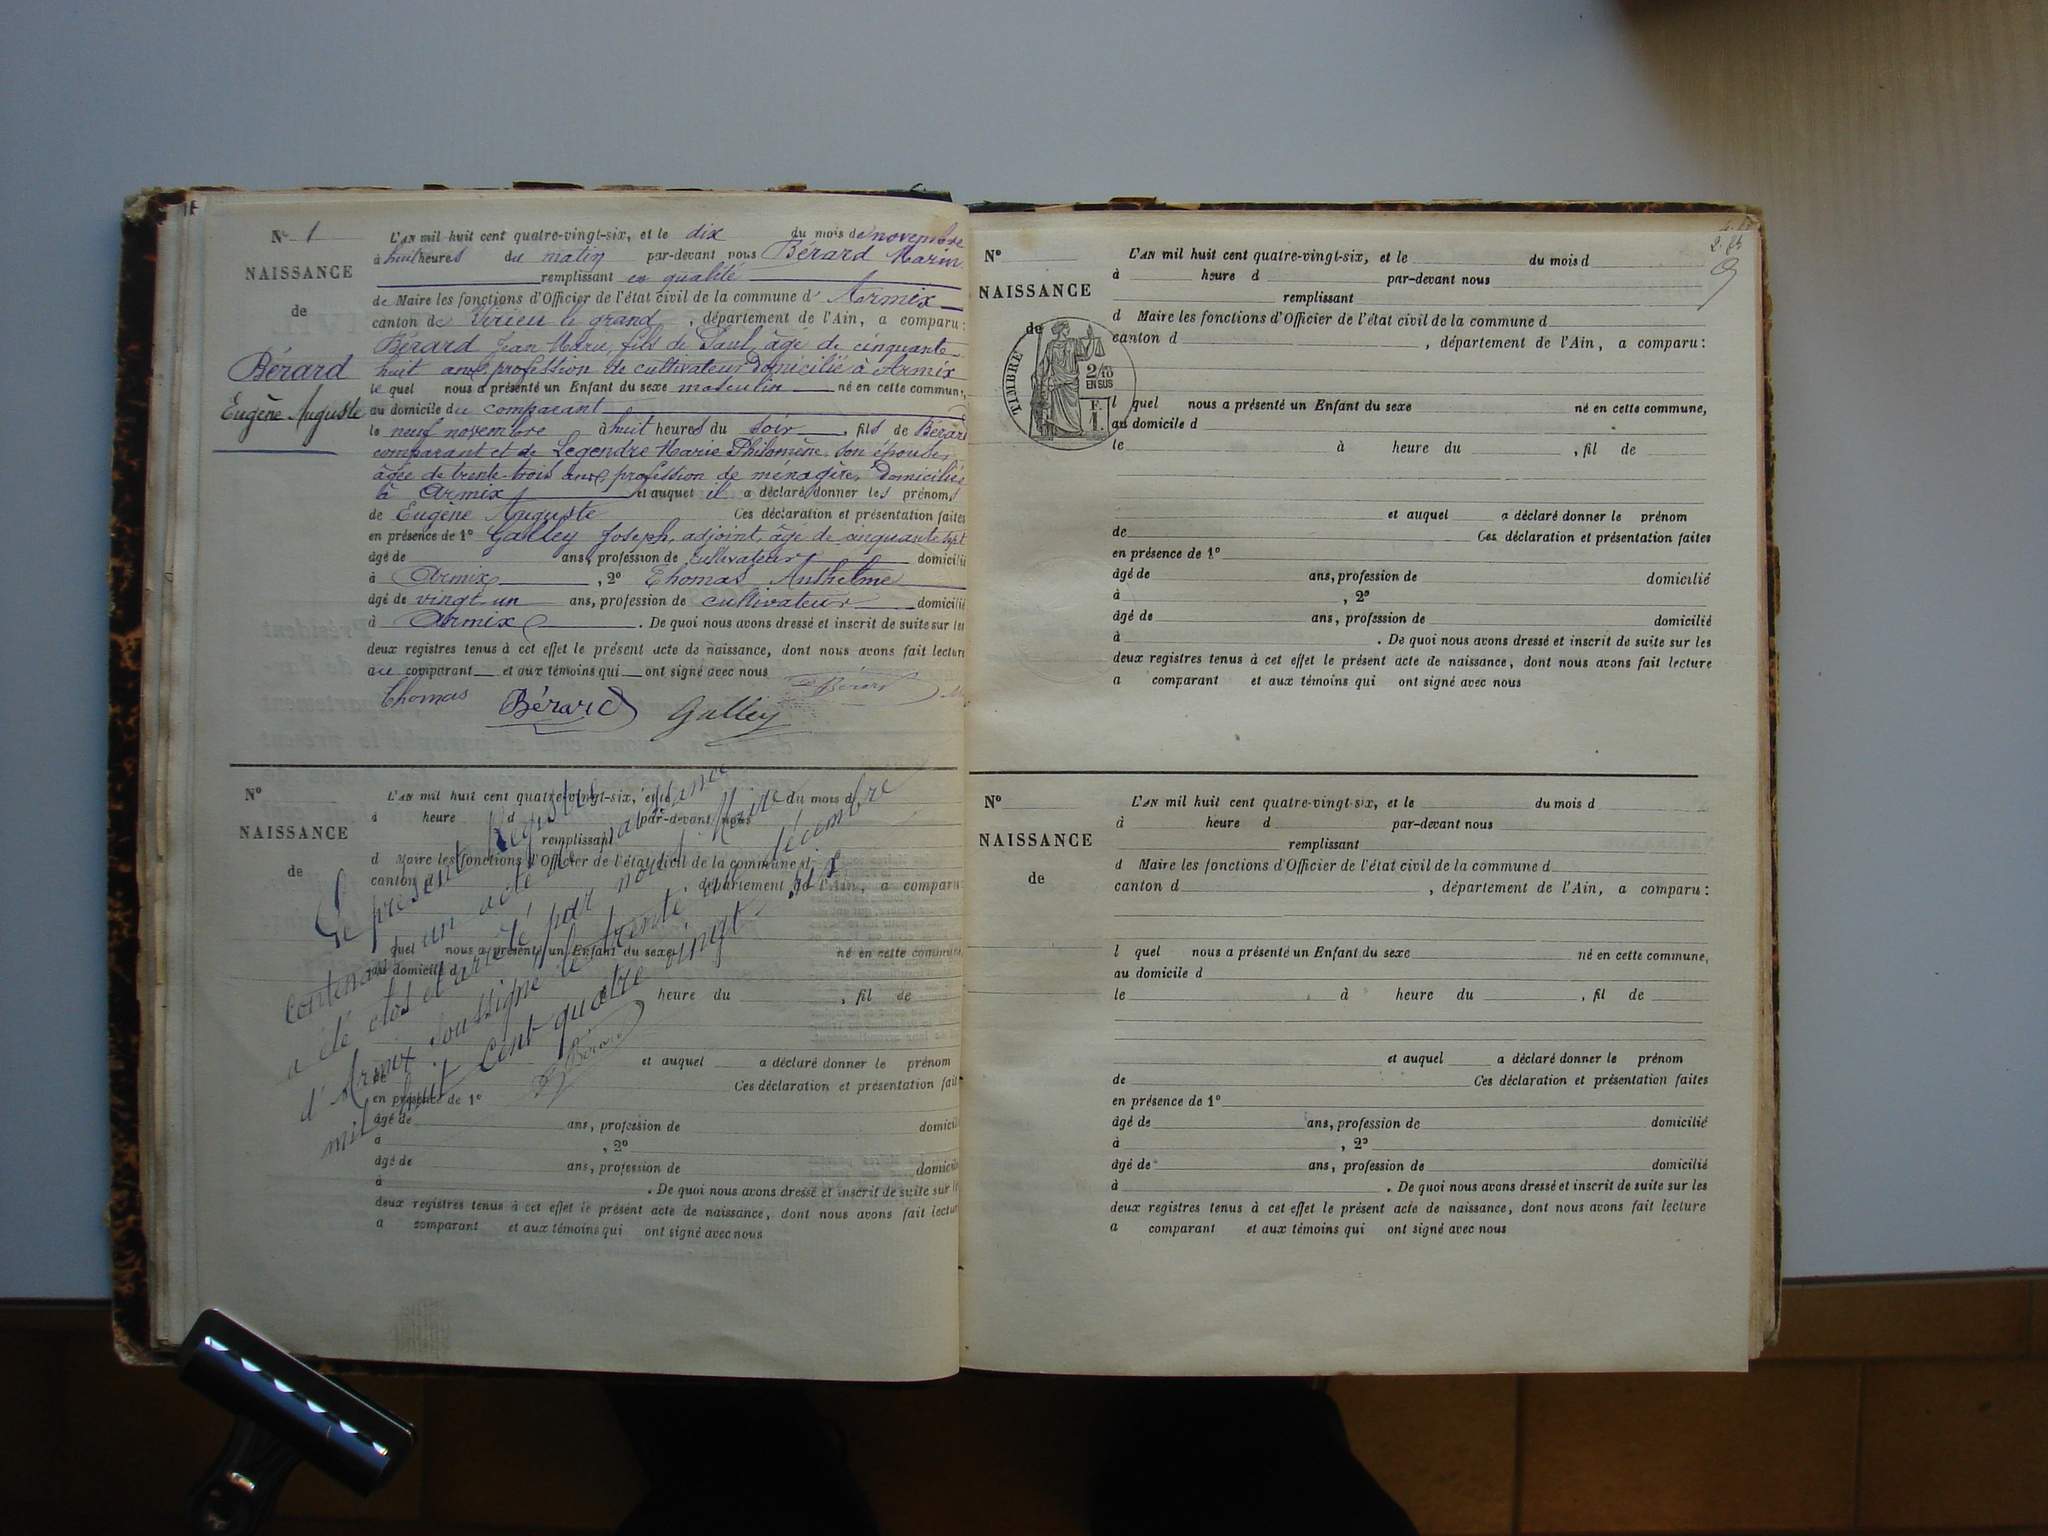 N° 1
NAISSANCE
de
Bérard
Eugène Auguste
L'AN mil huit cent quatre-vingt-six, et le dix du mois de novembre
à huit heures du matin par-devant nous Bérard Marin
remplissant en qualité
de Maire les fonctions d'Officier de l'état civil de la commune d' Armix
canton de Virieu le grand, département de l'Ain, a comparu:
Bérard Jean Marie, fils de Paul, âgé de cinquante
huit ans profession de cultivateur domicilié à Armix
le quel nous a présenté un Enfant du sexe masculin né en cette commune,
au domicile du comparant
le neuf novembre à huit heures du soir, fils de Bérard
comparant et de Legendre Marie Philomène son épouse,
âgée de trente-trois ans profession de ménagère, domiciliés
à Armix et auquel il a déclaré donner les prénoms
de Eugène Auguste Ces déclaration et présentation faites
en présence de 1° Galley Joseph, adjoint, âgé de cinquante sept
âgé de ans, profession de cultivateur domicilié
à Armix, 2° Thomas Anthelme
âgé de vingt-un ans, profession de cultivateur domicilié
à Armix. De quoi nous avons dressé et inscrit de suite sur les
deux registres tenus à cet effet le présent acte de naissance, dont nous avons fait lecture
au comparant et aux témoins qui ont signé avec nous
Thomas Bérard Galley Bérard
N°
NAISSANCE
de
L'AN mil huit cent quatre-vingt-six, et le du mois d
à heure d par-devant nous
remplissant
d Maire les fonctions d'Officier de l'état civil de la commune d
canton d, département de l'Ain, a comparu:
quel nous a présenté un Enfant du sexe né en cette commune,
au domicile d
heure du, fil de
et auquel a déclaré donner le prénom
de Ces déclaration et présentation fait
en présence de 1°
âgé de ans, profession de domicilié
à, 2°
âgé de ans, profession de domicilié
à. De quoi nous avons dressé et inscrit de suite sur le
deux registres tenus à cet effet le présent acte de naissance, dont nous avons fait lecture
a comparant et aux témoins qui ont signé avec nous
Le présent Registre de naissance
contenant un acte
a été clos et arrêté par nous Maire
d'Armix soussigné le trente décembre
mil huit cent quatre vingt six
Bérard
N°
NAISSANCE
de
TIMBRE
2/10
EN SUS
F.
1.
L'AN mil huit cent quatre-vingt-six, et le du mois d
à heure d par-devant nous
remplissant
d Maire les fonctions d'Officier de l'état civil de la commune d
canton d, département de l'Ain, a comparu:
l quel nous a présenté un Enfant du sexe né en cette commune,
au domicile d
le à heure du, fil de
et auquel a déclaré donner le prénom
de Ces déclaration et présentation faites
en présence de 1°
âgé de ans, profession de domicilié
à, 2°
âgé de ans, profession de domicilié
à. De quoi nous avons dressé et inscrit de suite sur les
deux registres tenus à cet effet le présent acte de naissance, dont nous avons fait lecture
a comparant et aux témoins qui ont signé avec nous
N°
NAISSANCE
de
L'AN mil huit cent quatre-vingt-six, et le du mois d
à heure d par-devant nous
remplissant
d Maire les fonctions d'Officier de l'état civil de la commune d
canton d, département de l'Ain, a comparu:
l quel nous a présenté un Enfant du sexe né en cette commune,
au domicile d
le à heure du, fil de
et auquel a déclaré donner le prénom
de Ces déclaration et présentation faites
en présence de 1°
âgé de ans, profession de domicilié
à, 2°
âgé de ans, profession de domicilié
à. De quoi nous avons dressé et inscrit de suite sur les
deux registres tenus à cet effet le présent acte de naissance, dont nous avons fait lecture
a comparant et aux témoins qui ont signé avec nous